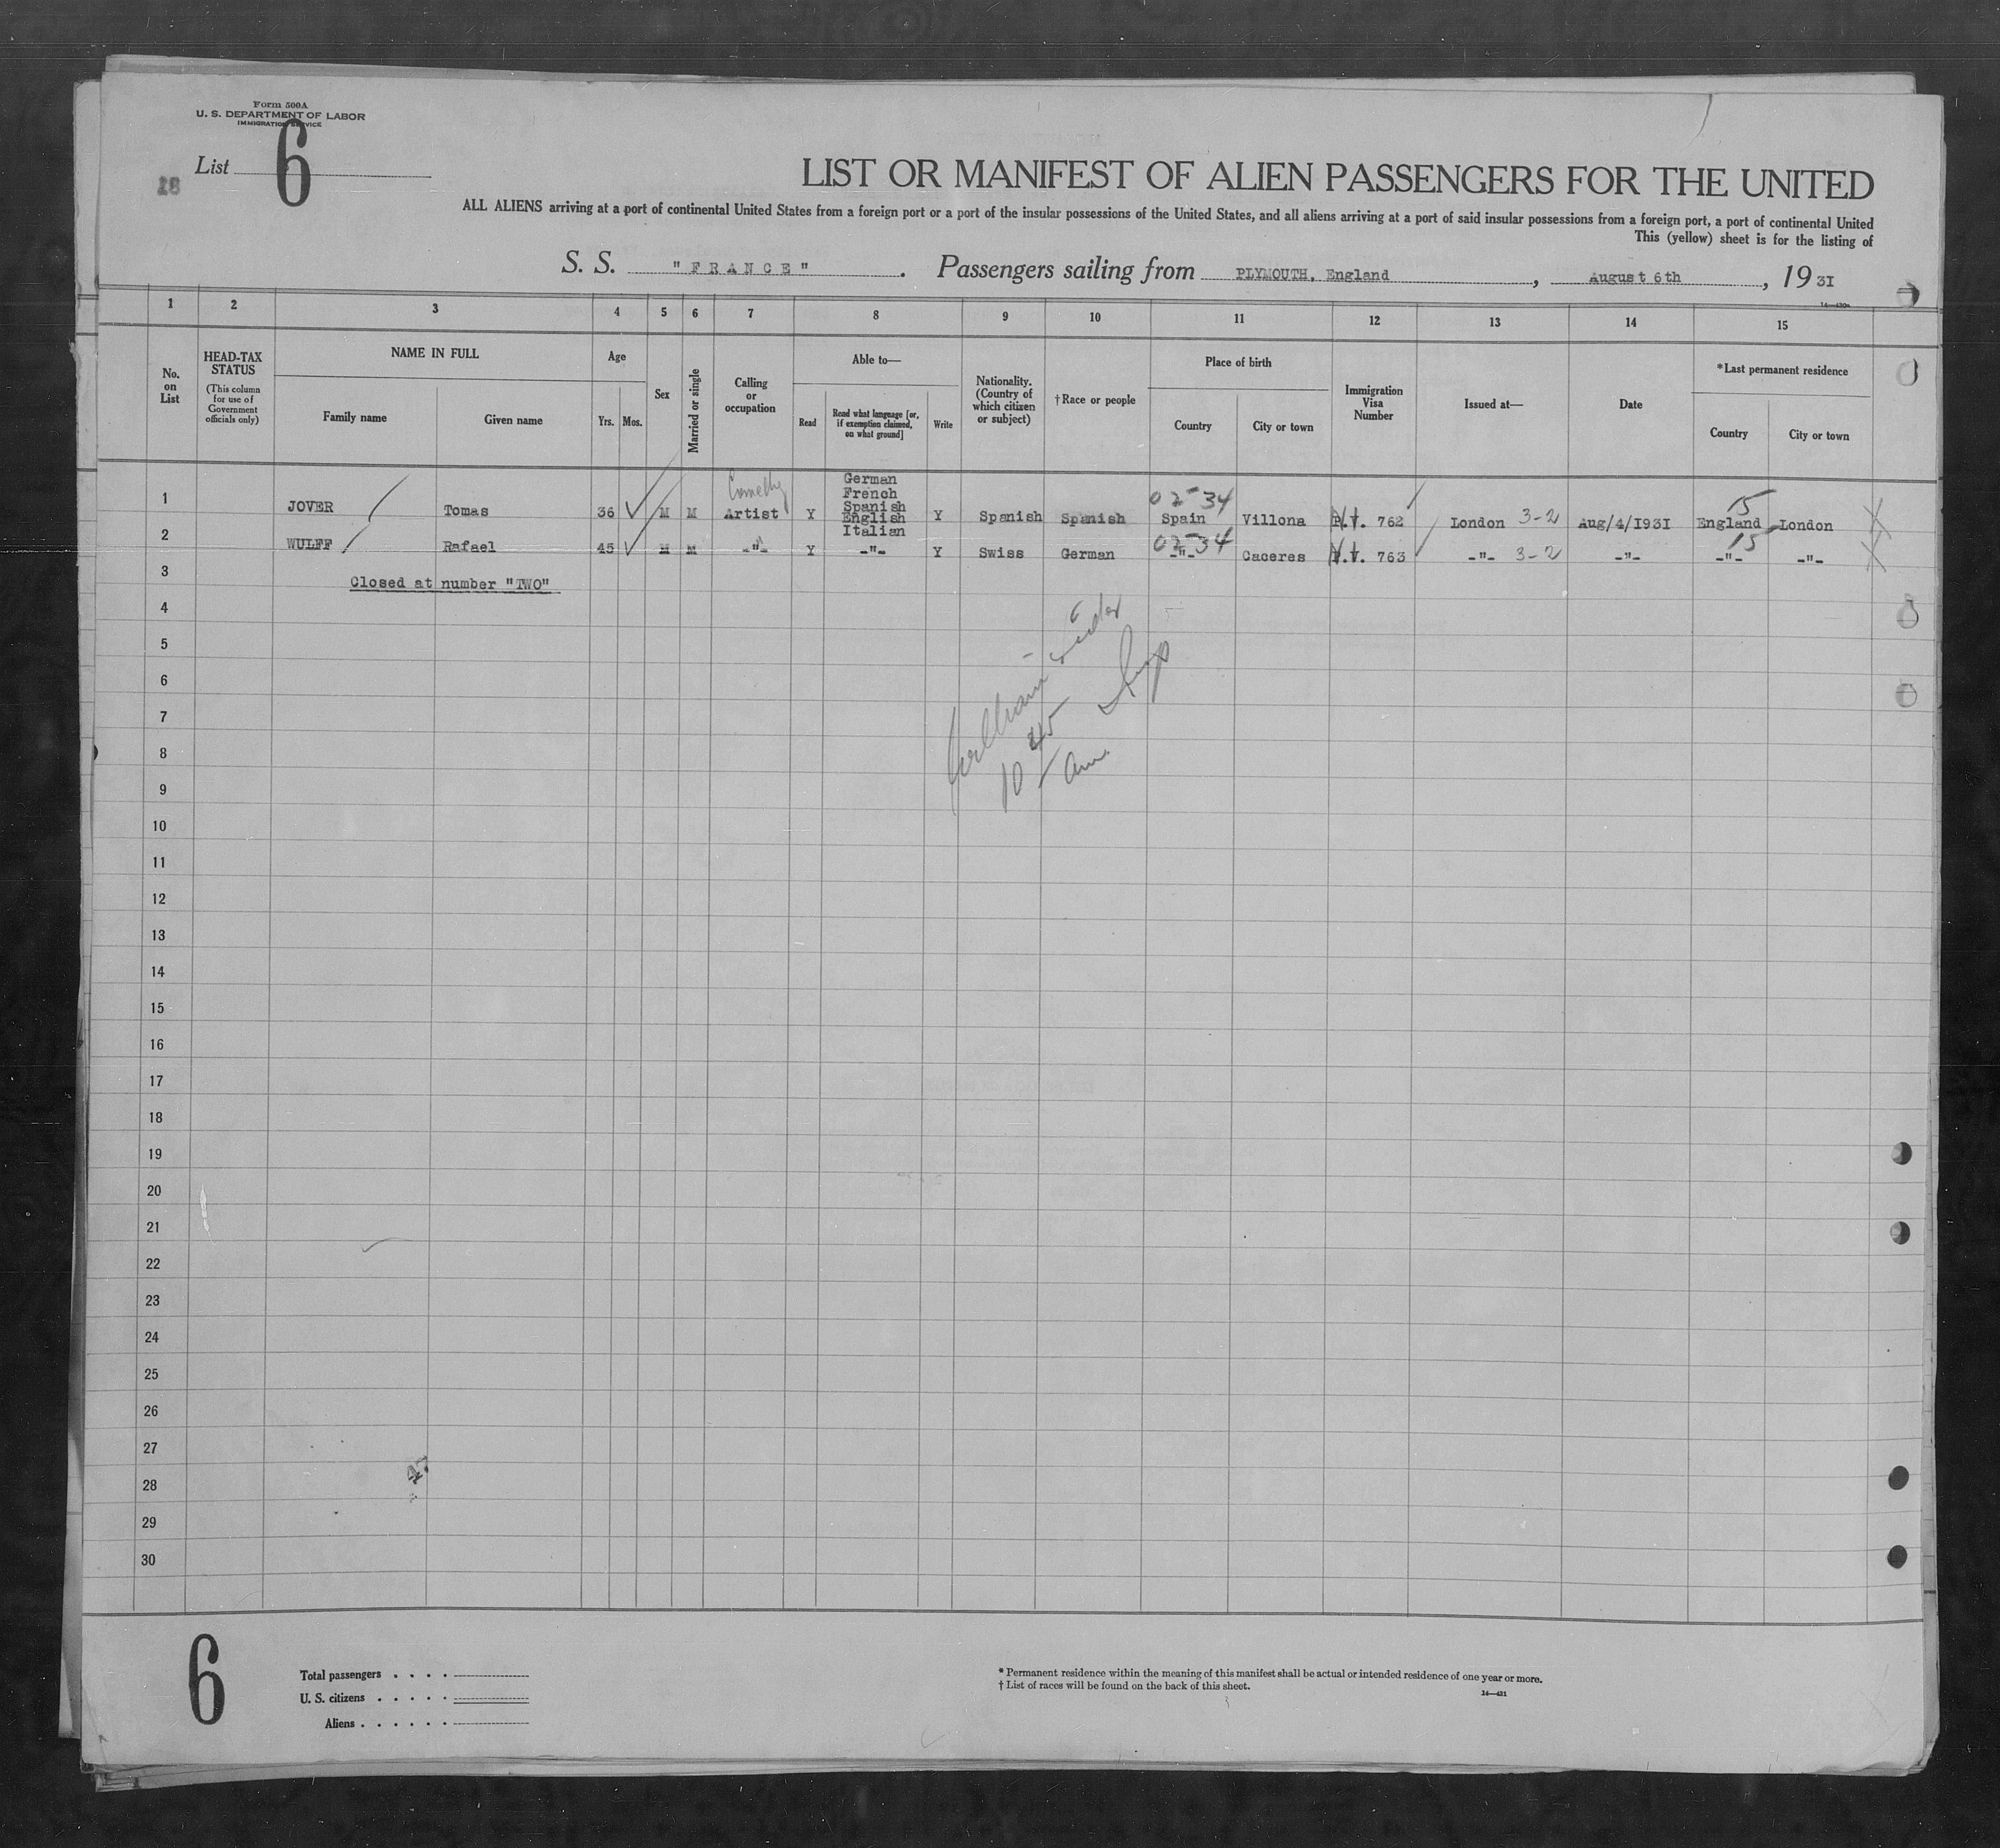 Form 500A
U. S. DEPARTMENT OF LABOR
IMMIGRATION SERVICE
List 6
28
LIST OR MANIFEST OF ALIEN PASSENGERS FOR THE UNITED
ALL ALIENS arriving at a port of continental United States from a foreign port or a port of the insular possessions of the United States, and all aliens arriving at a port of said insular possessions from a foreign port, a port of continental United
This (yellow) sheet is for the listing of
S. S. "FRANCE". Passengers sailing from PLYMOUTH, England, August 6th, 1931
14—430a
1 2 3 4 5 6 7 8 9 10 11 12 13 14 15
No. on List
HEAD-TAX STATUS
(This column for use of Government officials only)
NAME IN FULL
Family name Given name
Age
Yrs. Mos.
Sex
Married or single
Calling or occupation
Able to—
Read
Read what language [or, if exemption claimed, on what ground]
Write
Nationality. (Country of which citizen or subject)
†Race or people
Place of birth
Country City or town
Immigration Visa Number
Issued at—
Date
*Last permanent residence
Country City or town
1 JOVER Tomas 36 M M Artist Y German French Spanish English Italian Y Spanish Spanish 02-34 Spain Villona P.V. 762 London 3-2 Aug/4/1931 15 England London
2 WULFF Rafael 45 M M -"- Y -"- Y Swiss German 02-34 -"- Caceres P.V. 763 -"- 3-2 -"- 15 -"- -"-
3 Closed at number "TWO"
4
5
6
7
8
9
10
11
12
13
14
15
16
17
18
19
20
21
22
23
24
25
26
27
28
29
30
William
Insp
10 45 am
47
6
Total passengers . . . .
U. S. citizens . . . . .
Aliens . . . . . .
* Permanent residence within the meaning of this manifest shall be actual or intended residence of one year or more.
† List of races will be found on the back of this sheet.
14—431